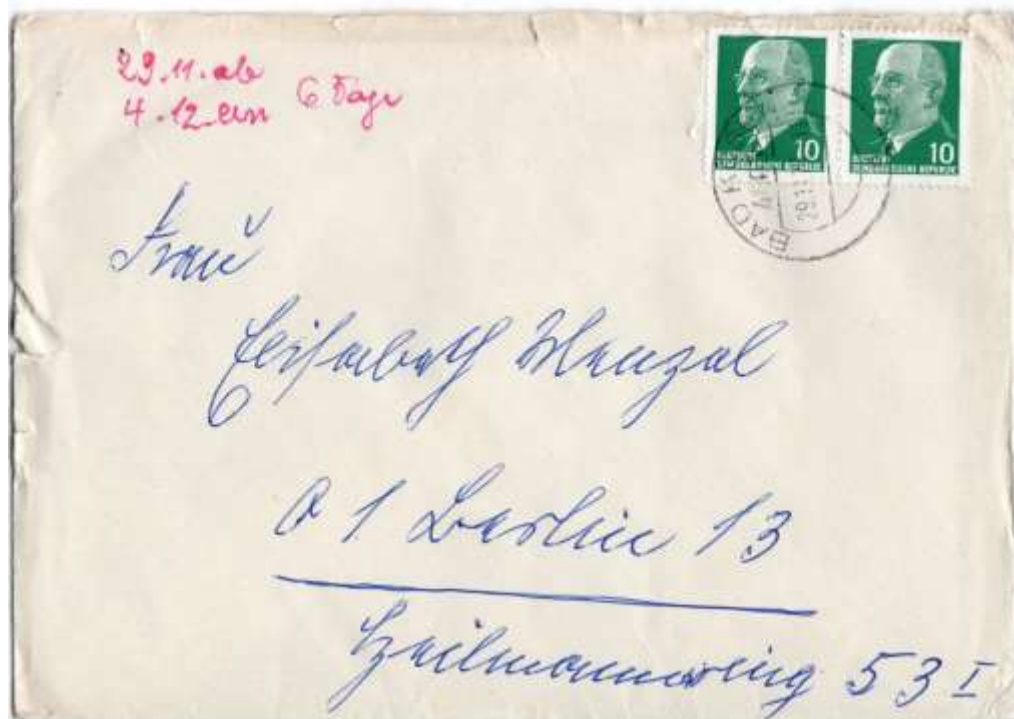 29.11. ab
4.12. an 6 Tage
10
DEUTSCHE
DEMOKRATISCHE REPUBLIK
10
DEUTSCHE
DEMOKRATISCHE REPUBLIK
BAD K
29.11.
Frau
Elisabeth Wenzel
01 Berlin 13
Heilmannring 53 I